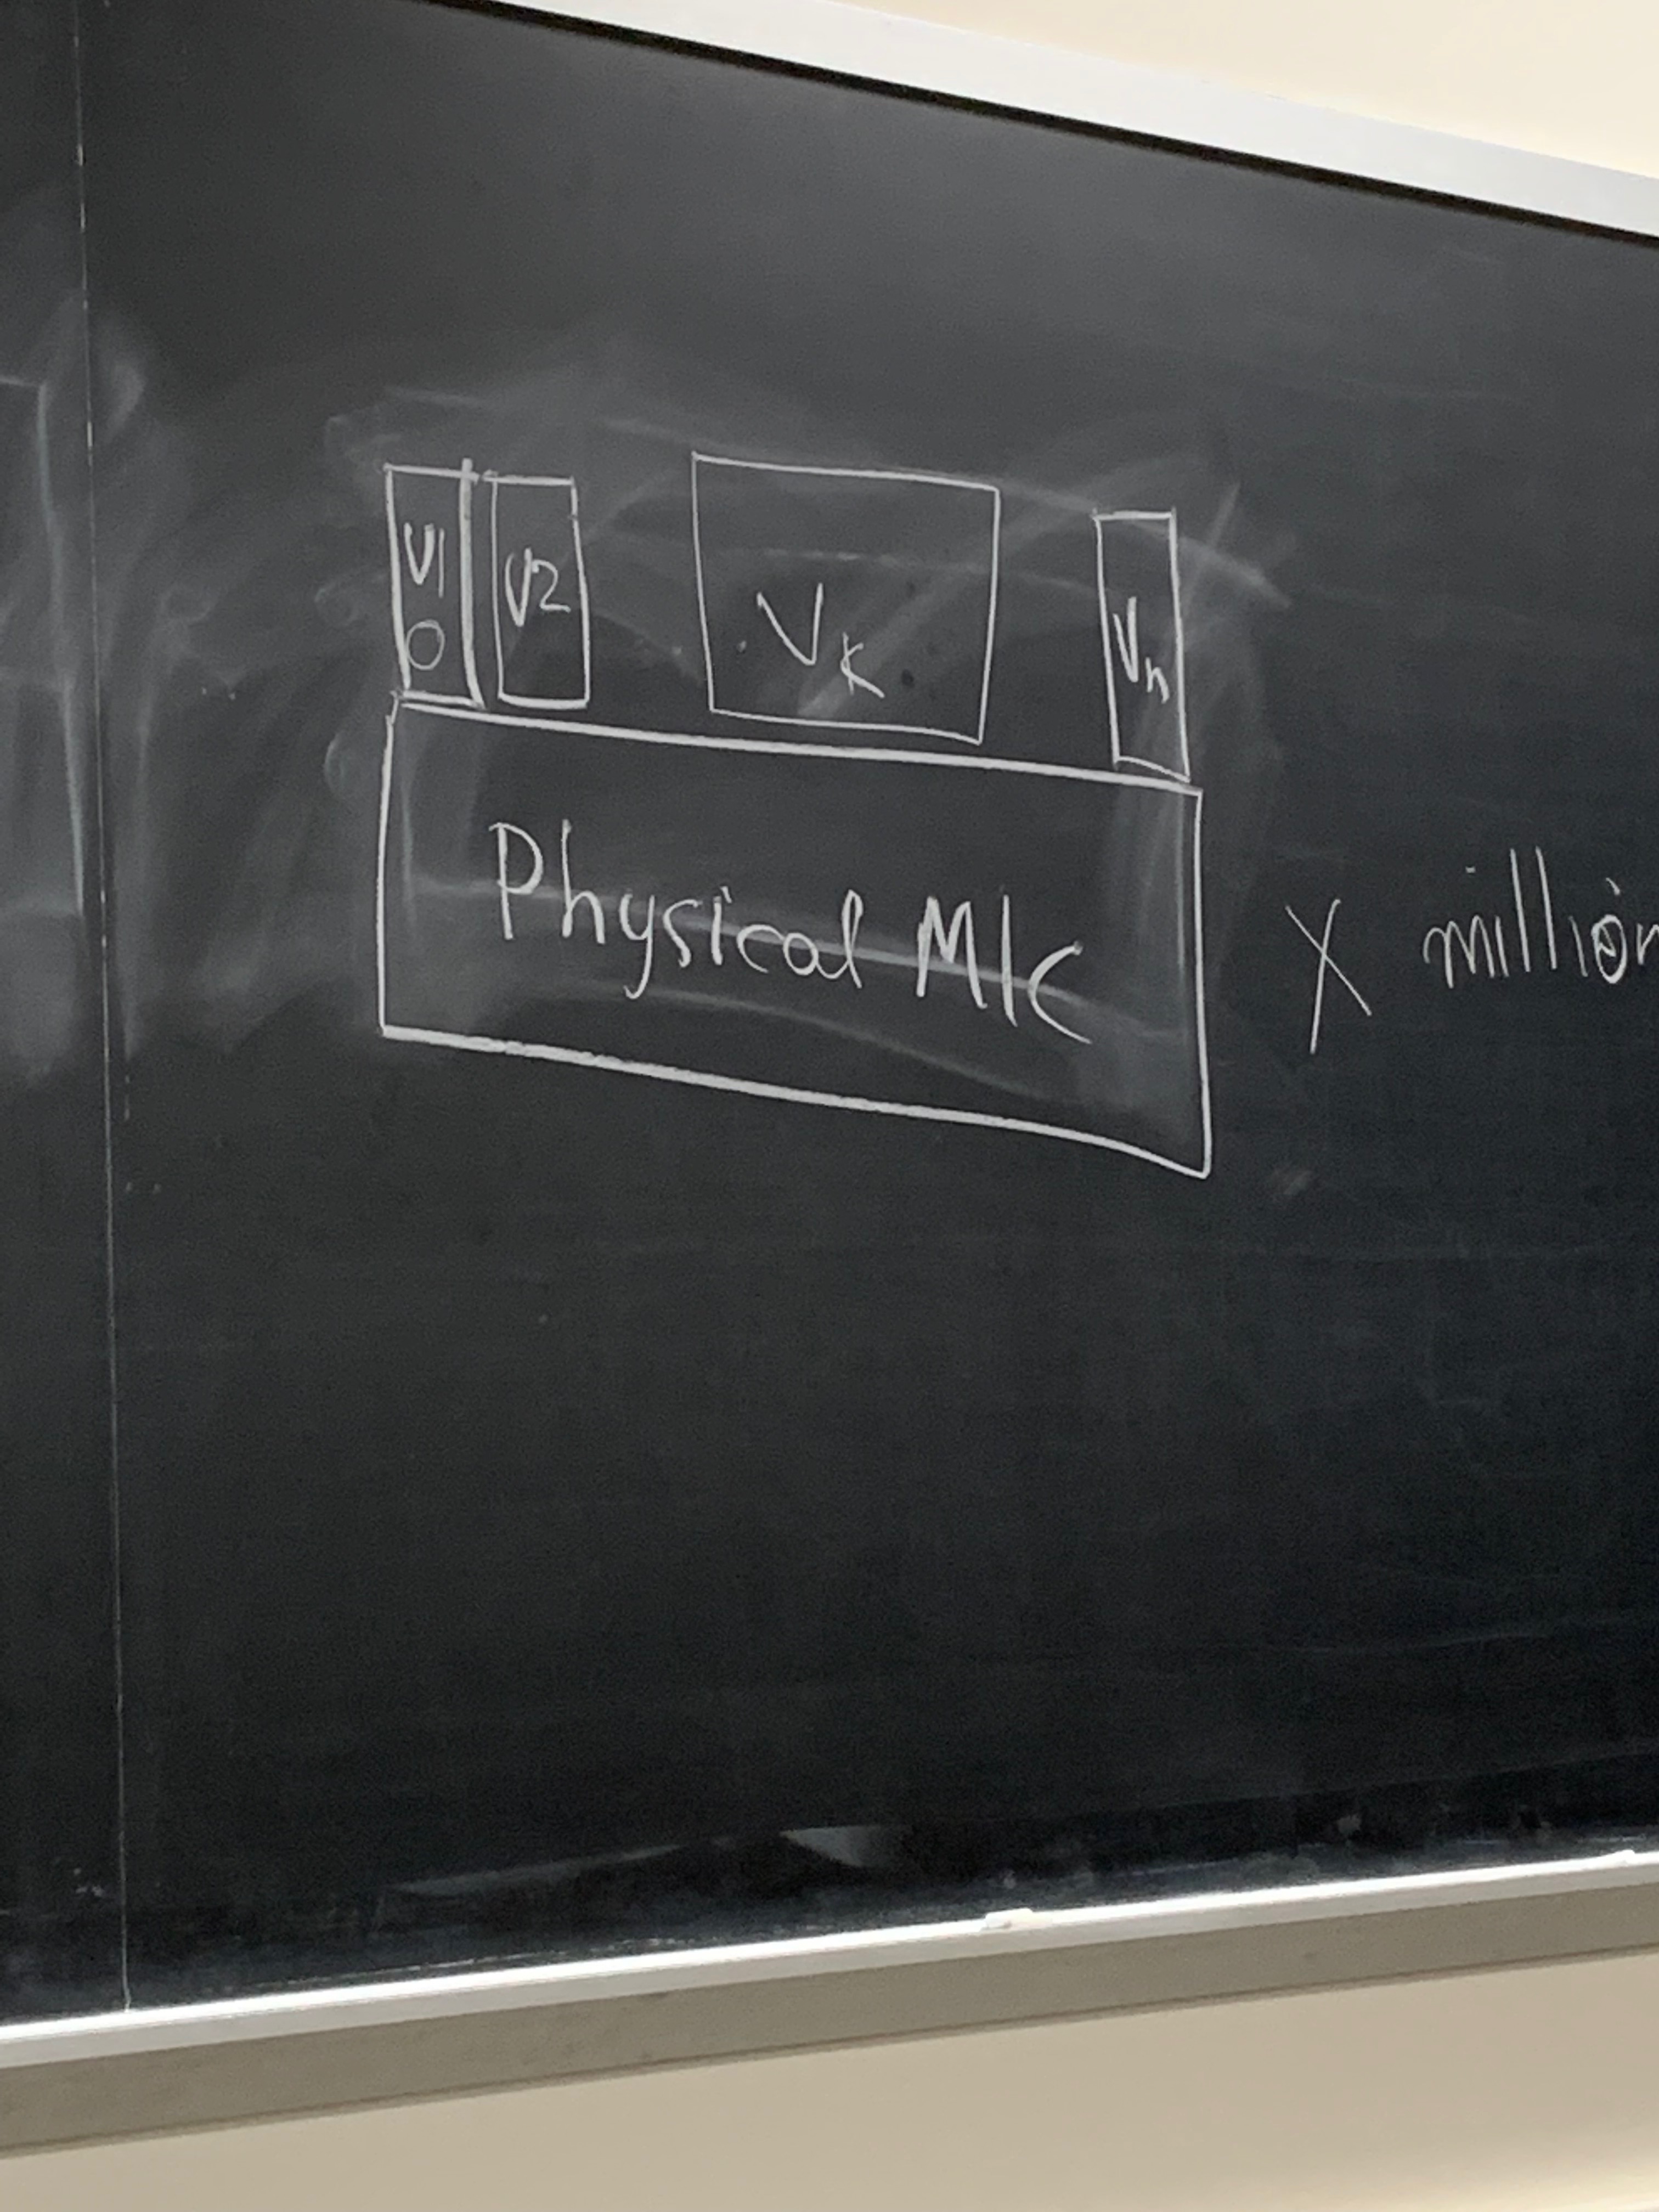 V1 V2 Vk Vn
O
Physical M/C X million